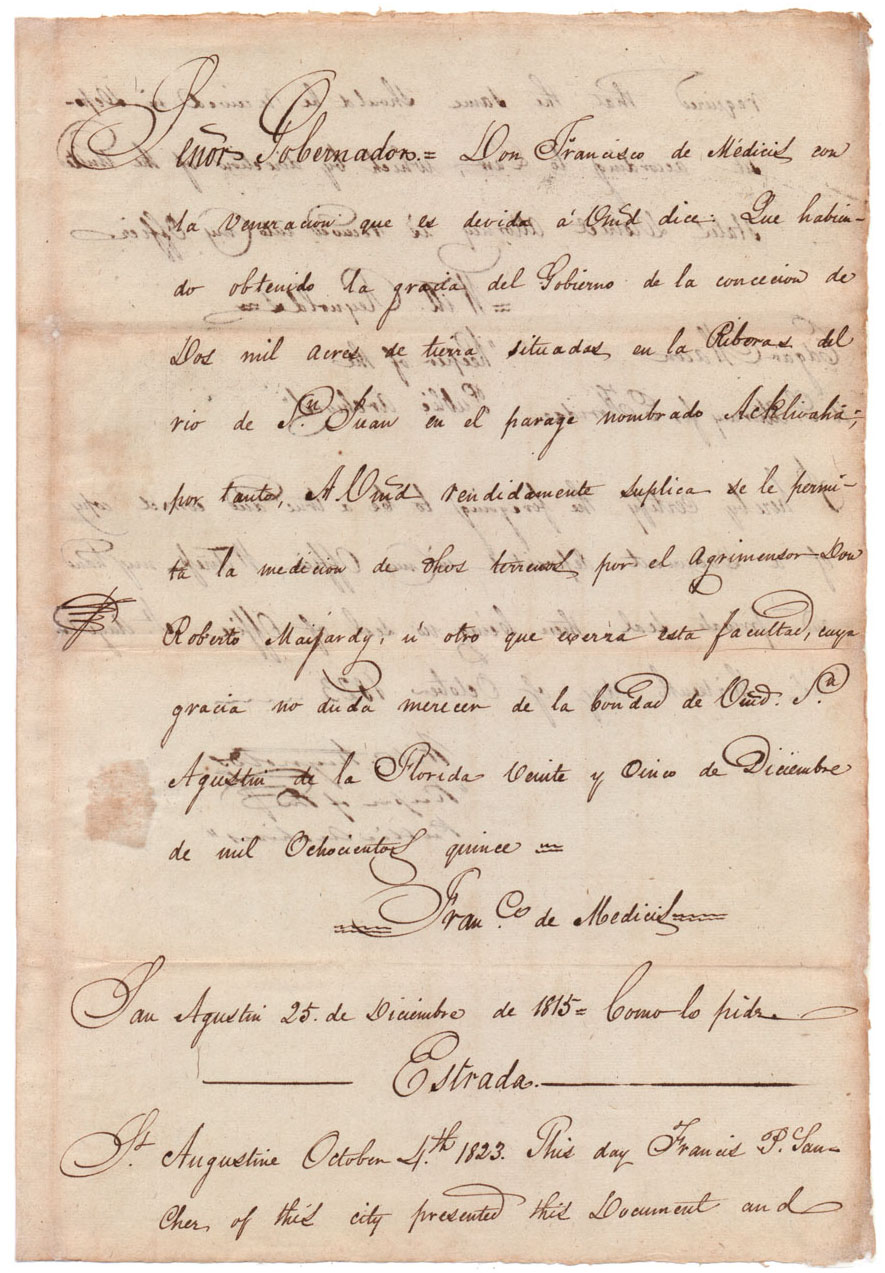 Señor Gobernador.= Don Francisco de Médicis con
la veneracion que es devida á Vmd dice: Que habien-
do obtenido la gracia del Gobierno de la concecion de
Dos mil acres de tierra situadas en la Riboras del
rio de Sn. Juan en el parage nombrado Acklivahá;
por tanto, A Vmd rendidamente suplica se le permi-
ta la medicion de dhos terrenos por el Agrimensor Don
Roberto Maijardy, ú otro que exerza esta facultad, cuya
gracia no duda merecer de la bondad de Vmd. Sn
Agustin de la Florida Veinte y Cinco de Diciembre
de mil Ochocientos quince =
Fran.co de Medicis
San Agustin 25. de Diciembre de 1815= Como lo pide.
Estrada.
St. Augustine October 4.th 1823. This day Francis P. San-
chez of this city presented this Document and